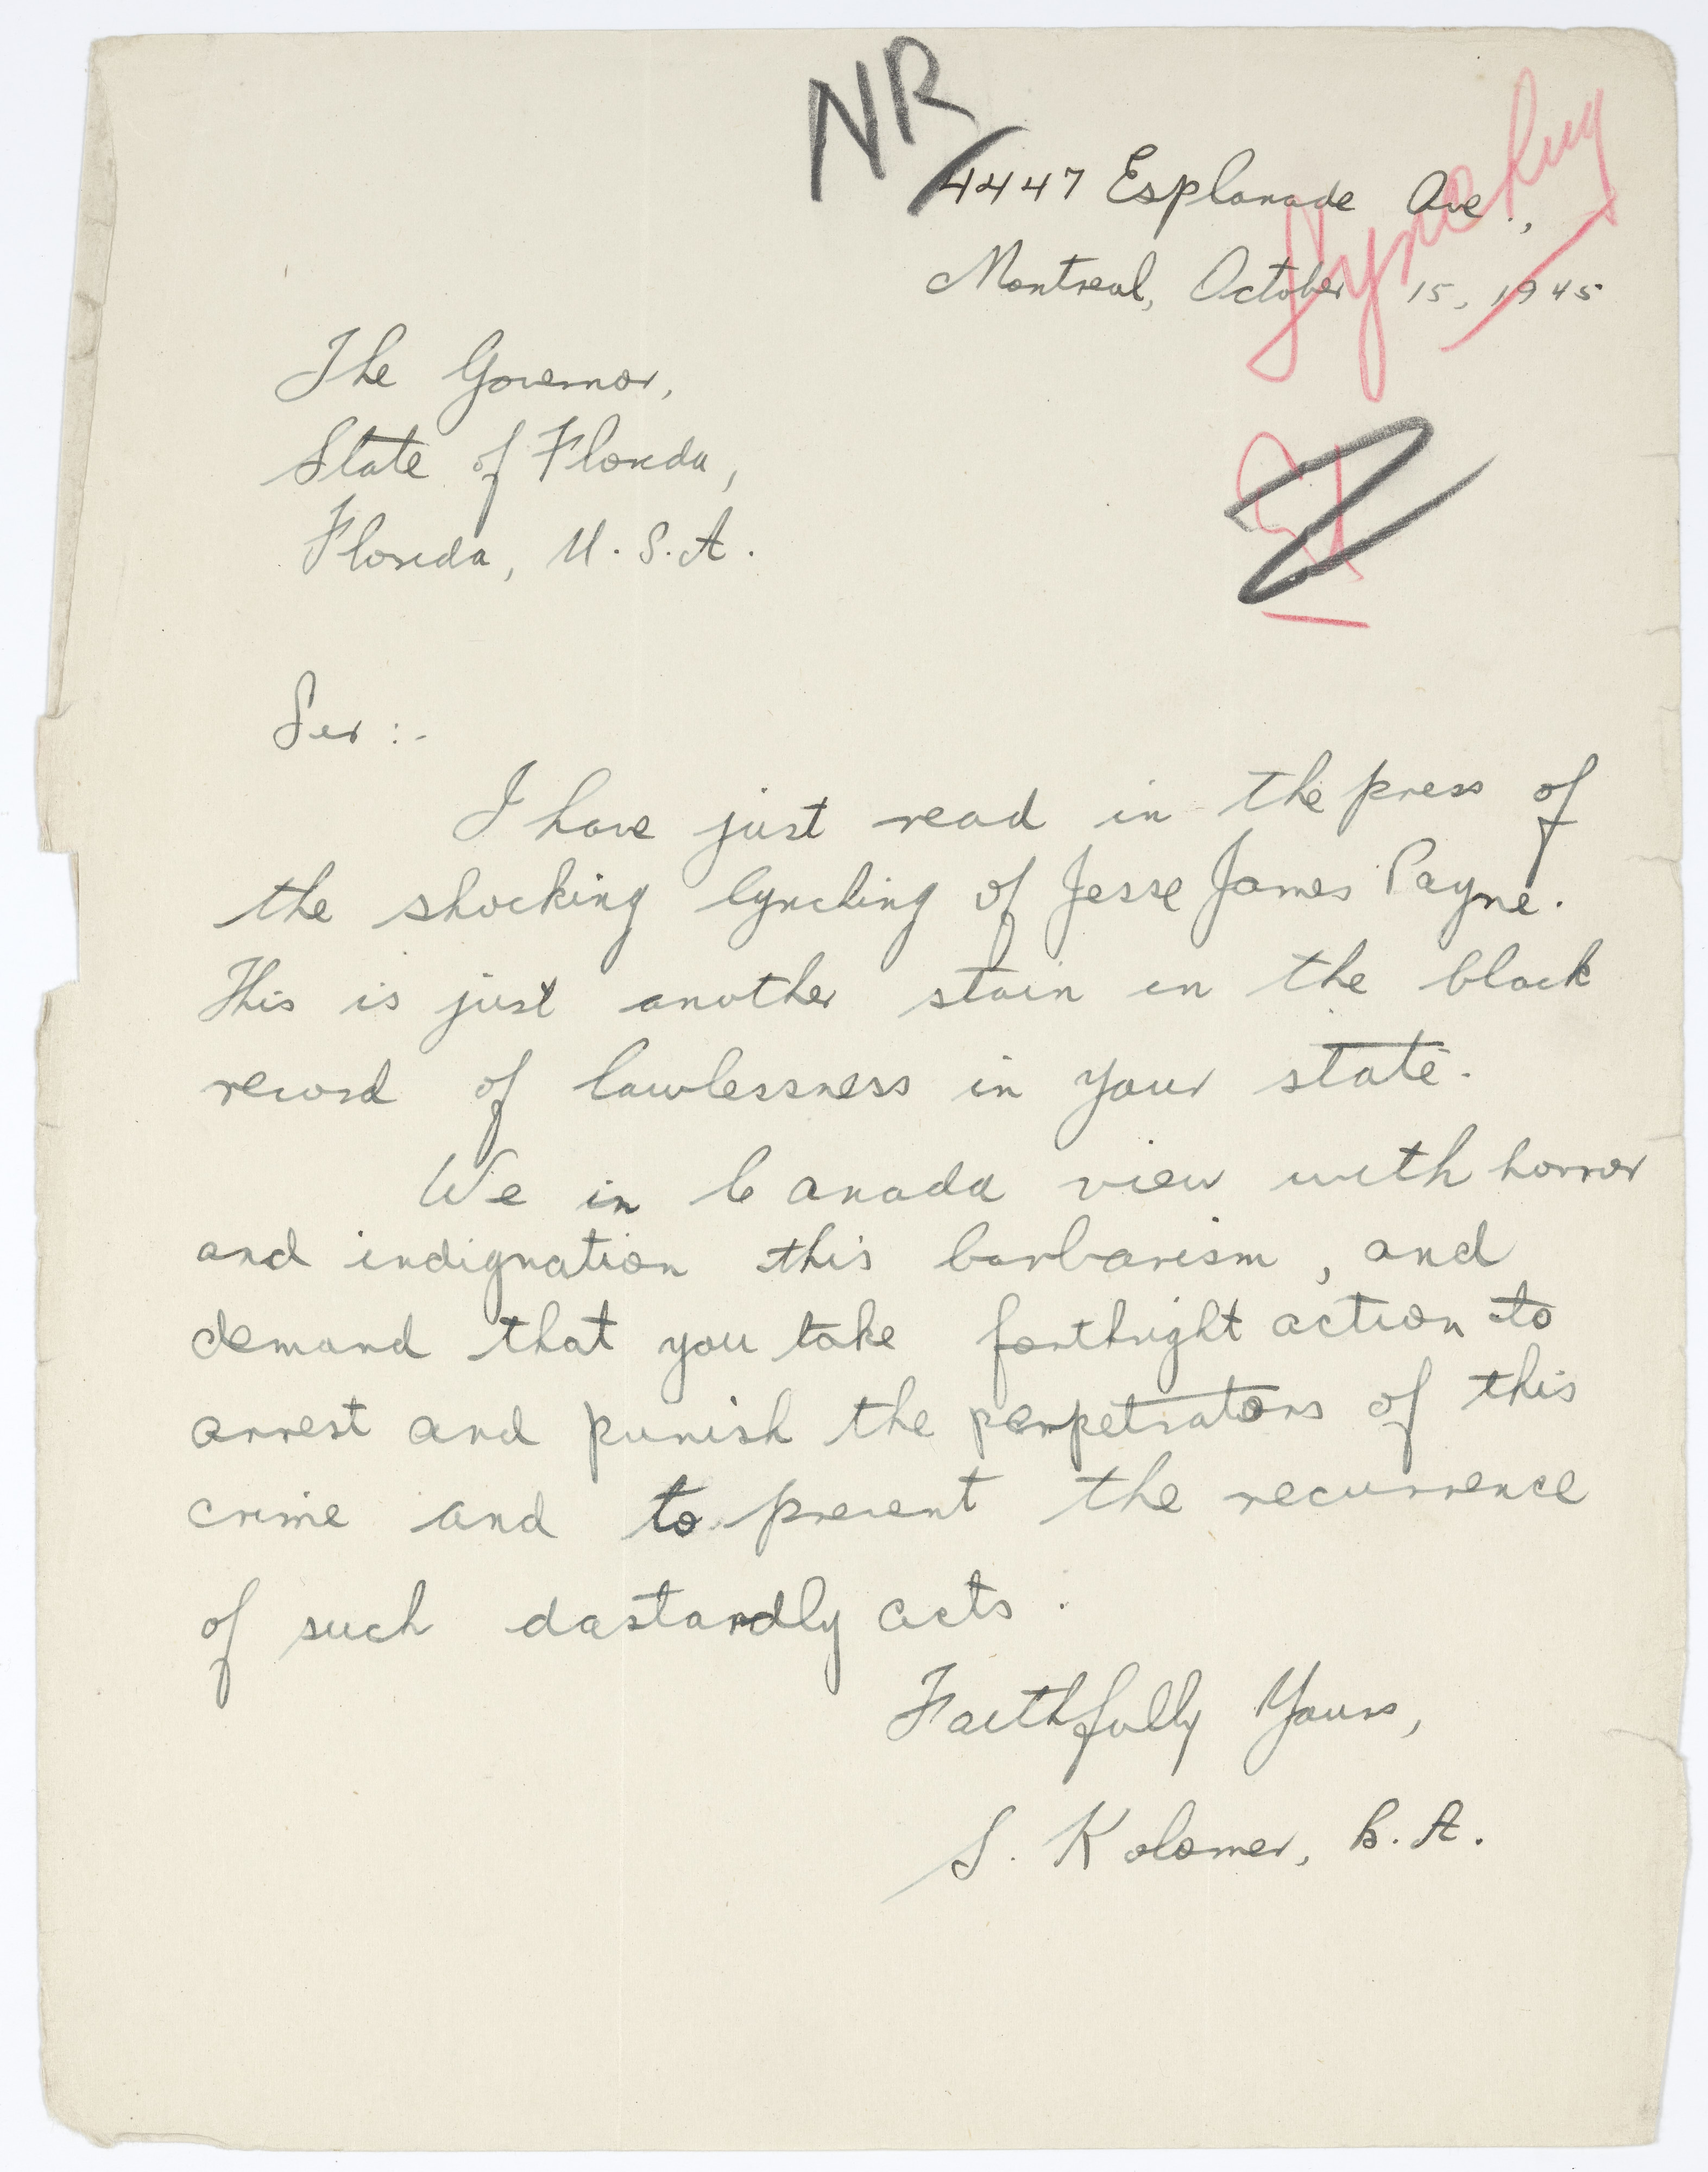 NR
4447 Esplanade Ave.,
Montreal, October 15, 1945
Lynching
The Governor,
State of Florida,
Florida, U.S.A.
Sir:-
I have just read in the press of
the shocking lynching of Jesse James Payne.
This is just another stain in the black
record of lawlessness in your state.
We in Canada view with horror
and indignation this barbarism, and
demand that you take forthright action to
arrest and punish the perpetrators of this
crime and to prevent the recurrence
of such dastardly acts.
Faithfully Yours,
S. Kolomer, B.A.